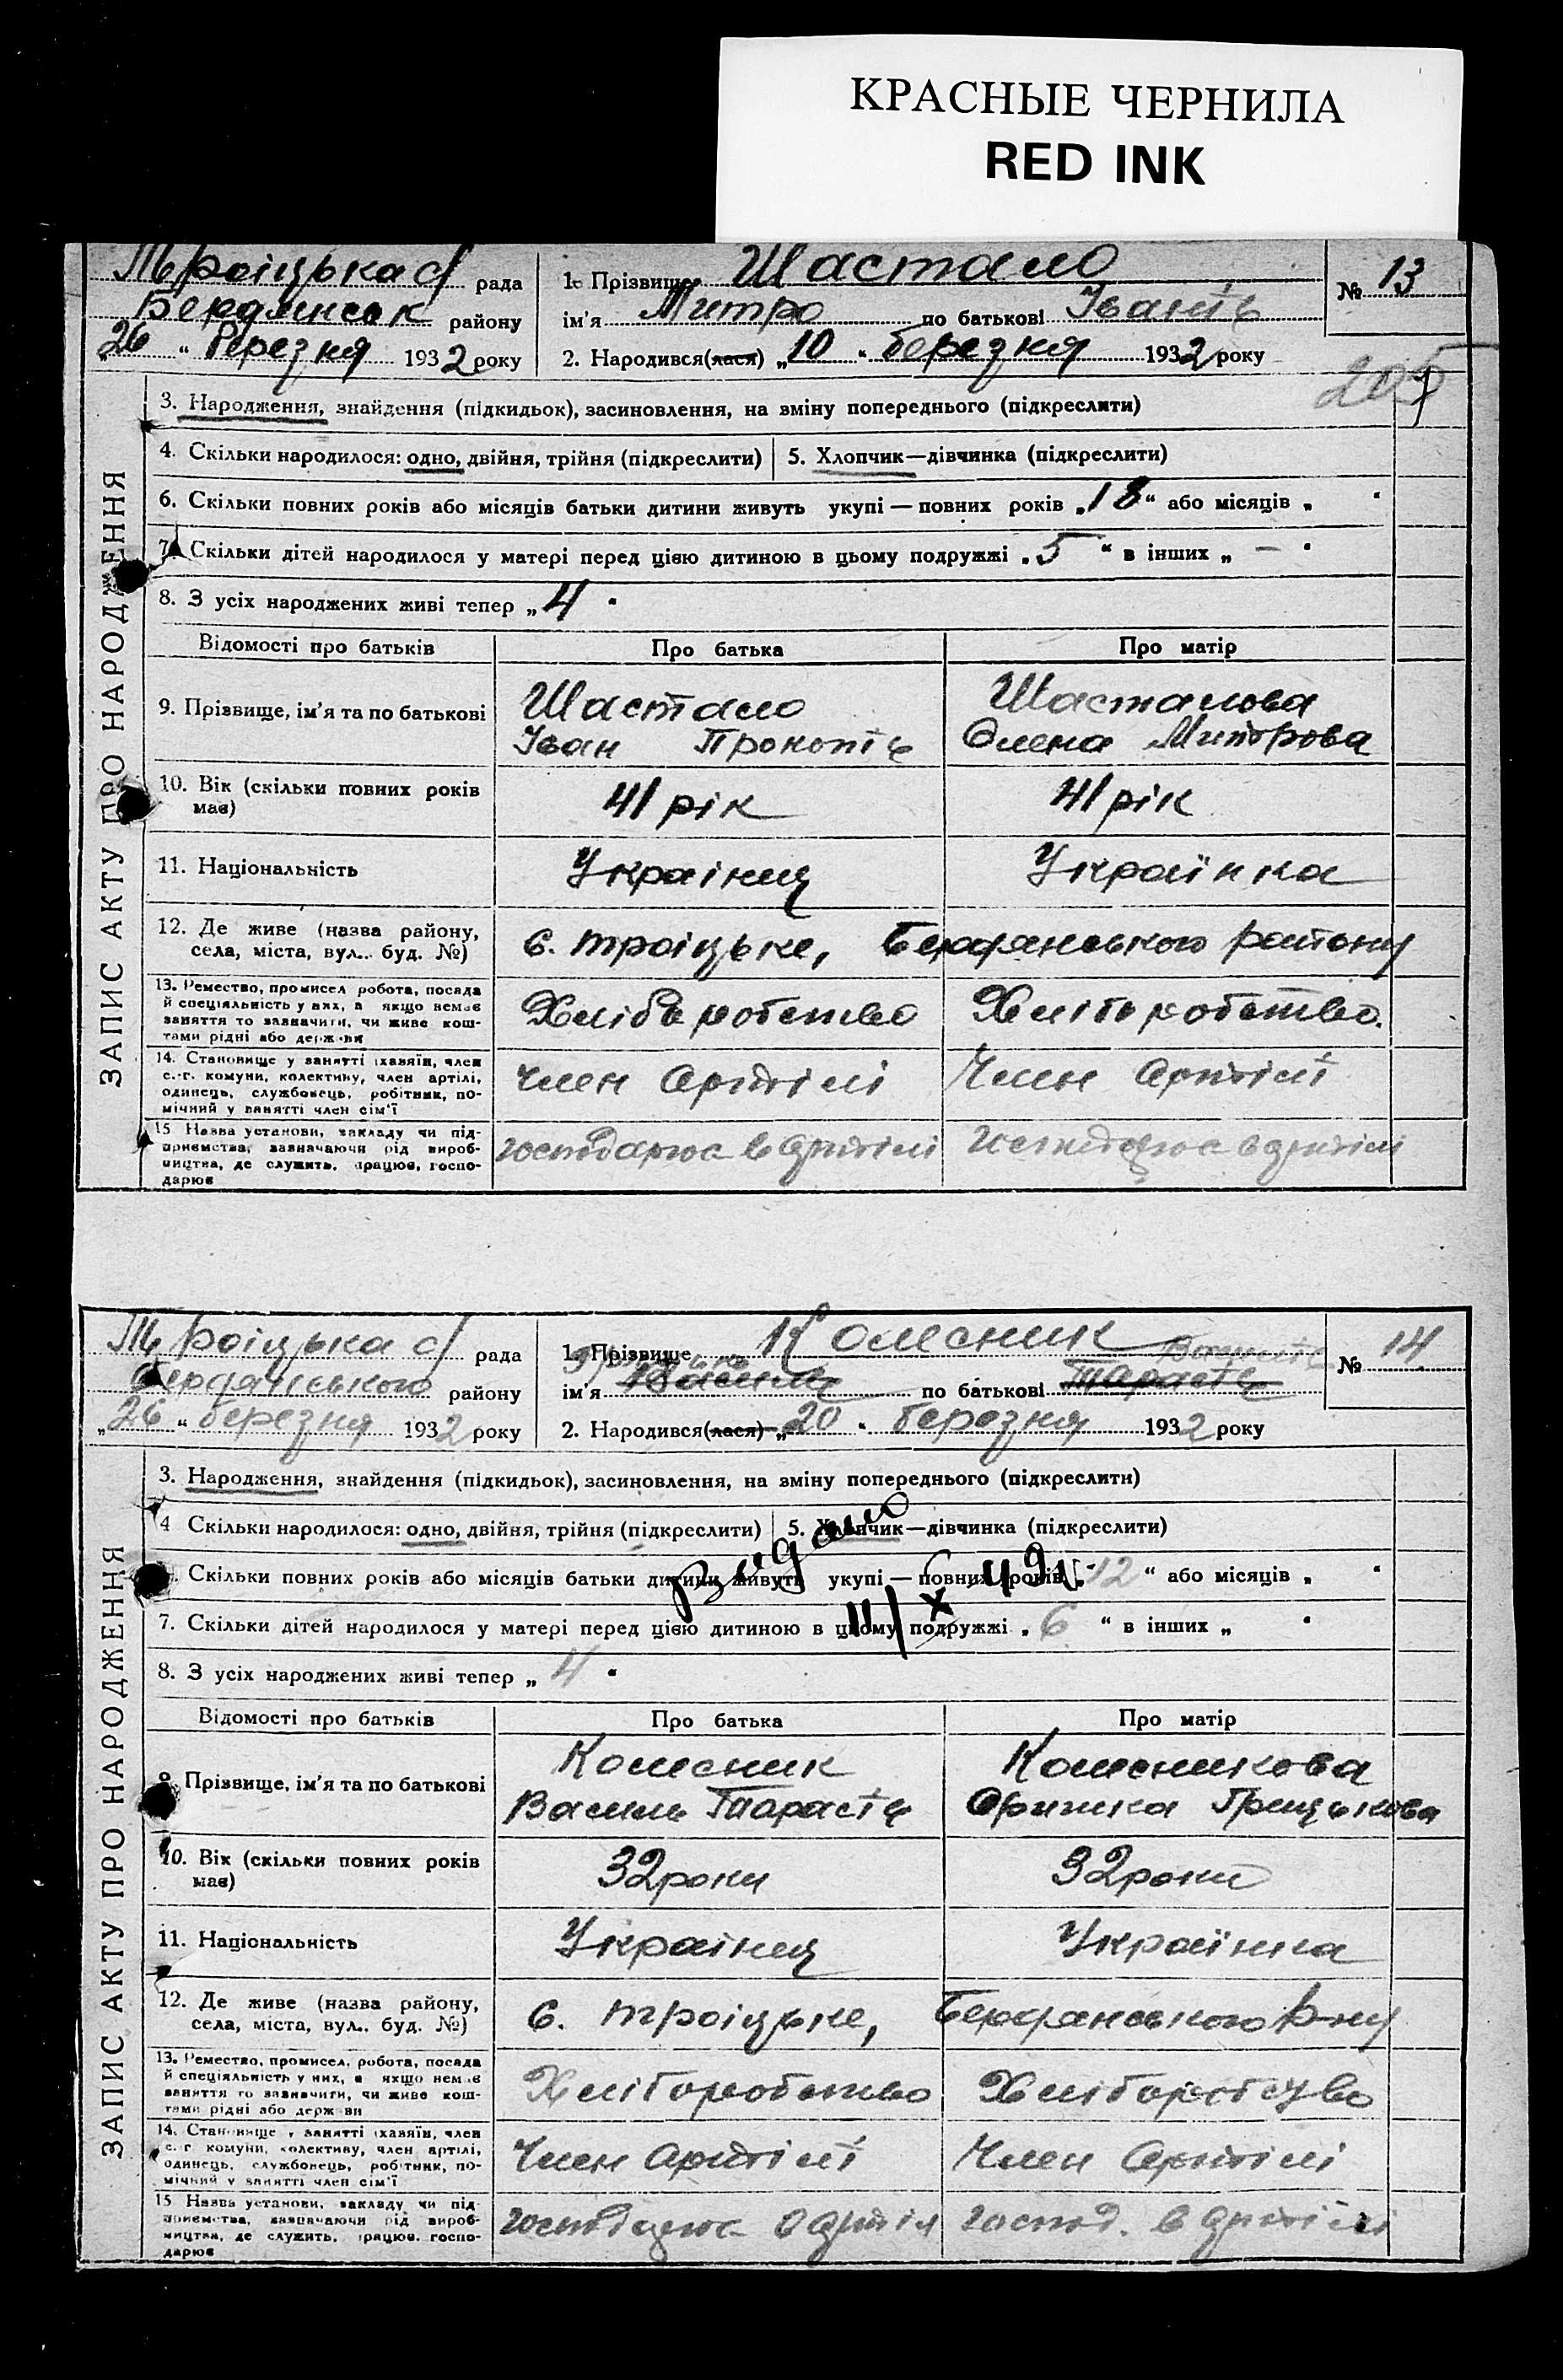 КРАСНЫЕ ЧЕРНИЛА
RED INK
Троіцька с/ рада
Бердянськ району
26 " березня 1932 року
1. Прізвище Шастало
ім'я Митро по батькові Іванів
2. Народився(лася) „10 " березня 1932 року
№ 13
205
ЗАПИС АКТУ ПРО НАРОДЖЕННЯ
3. Народження, знайдення (підкидьок), засиновлення, на зміну попереднього (підкреслити)
4. Скільки народилося: одно, двійня, трійня (підкреслити) 5. Хлопчик—дівчинка (підкреслити)
6. Скільки повних років або місяців батьки дитини живуть укупі — повних років „18" або місяців „ "
7. Скільки дітей народилося у матері перед цією дитиною в цьому подружжі „5 " в інших „ — "
8. З усіх народжених живі тепер „ 4 "
Відомості про батьків Про батька Про матір
9. Прізвище, ім'я та по батькові Шастало Шасталова
Іван Прокопів Олена Митрова
10. Вік (скільки повних років має) 41 рік 41 рік
11. Національність Українец Українка
12. Де живе (назва району,
села, міста, вул.. буд. №) с. Троіцьке, Бердянського району
13. Ремество, промисел робота, посада
й спеціяльність у них, а якщо немає
заняття то зазначити, чи живе кош-
тами рідні або держави
Хліборобство Хліборобство.
14. Становище у занятті (хазяїн, член
с.-г. комуни, колективу, член артілі,
одинець, службовець, робітник, по-
мічний у занятті член сім'ї
член Артілі Член Артілі
15 Назва установи, закладу чи під-
приємства, зазначаючи рід вироб-
ництва, де служить, працює, госпо-
дарює
господарює в артілі господарює в артілі
Троіцька с/ рада
Бердянського району
„26 " березня 1932 року
1. Прізвище Колесник
ім'я Василь по батькові Тарасів Василів
2. Народився(лася) „20 " березня 1932 року
№ 14
ЗАПИС АКТУ ПРО НАРОДЖЕННЯ
3. Народження, знайдення (підкидьок), засиновлення, на зміну попереднього (підкреслити)
4 Скільки народилося: одно, двійня, трійня (підкреслити) 5. Хлопчик—дівчинка (підкреслити)
Видано
Скільки повних років або місяців батьки дитини живуть укупі — повних років „12 " або місяців „ "
11/X
7. Скільки дітей народилося у матері перед цією дитиною в цьому подружжі „ 6 " в інших „ "
8. З усіх народжених живі тепер „ 4 "
Відомості про батьків Про батька Про матір
9. Прізвище, ім'я та по батькові Колесник Колесникова
Василь Тарасів Оришка Грицькова
10. Вік (скільки повних років має) 32 роки 32 роки
11. Національність Українец Українка
12. Де живе (назва району,
села, міста, вул.. буд. №) с. Троіцьке, Бердянського р-ну
13. Ремество, промисел, робота, посада
й спеціяльність у них, а якщо немає
заняття то зазначити, чи живе кош-
тами рідні або держави
Хліборобство Хліборобство
14. Становище у занятті (хазяїн, член
с.-г. комуни, колективу, член артілі,
одинець, службовець, робітник, по-
мічний у занятті член сім'ї
Член Артілі Член Артілі
15 Назва установи, закладу чи під-
приємства, зазначаючи рід вироб-
ництва, де служить, працює, госпо-
дарює
господарює в артіл господ. в артілі